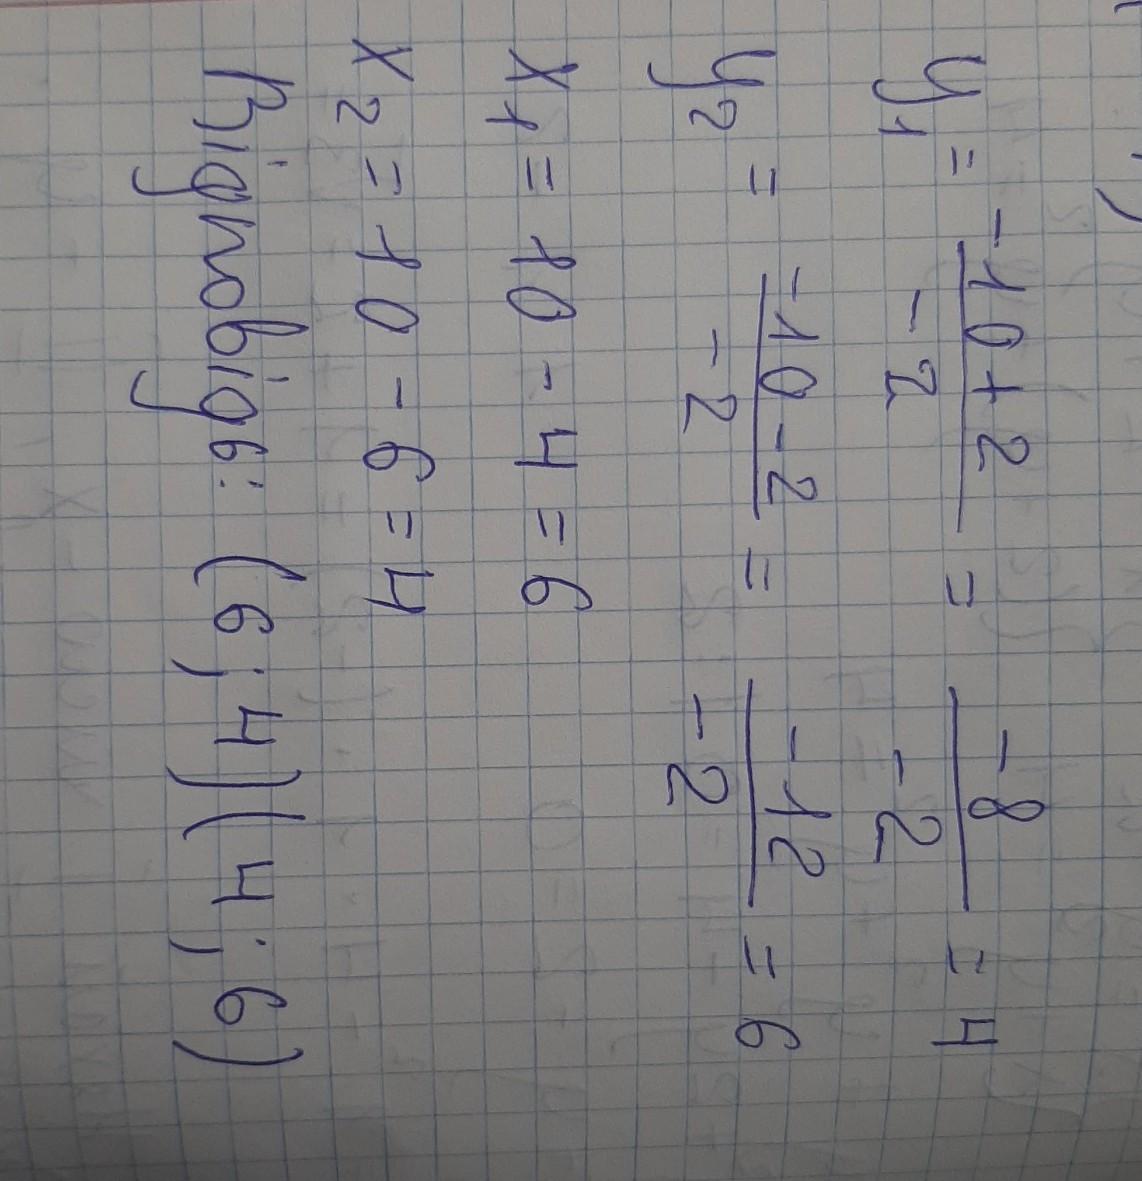 y₁ = (-10+2)/(-2) = (-8)/(-2) = 4
y₂ = (-10-2)/(-2) = (-12)/(-2) = 6
x₁ = 10 - 4 = 6
x₂ = 10 - 6 = 4
Відповідь: (6; 4)(4; 6)